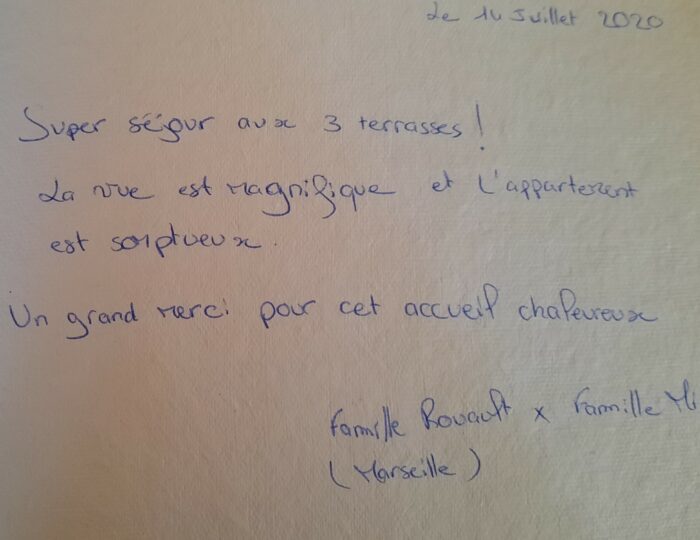 Le 14 Juillet 2020
Super séjour aux 3 terrasses !
La vue est magnifique et l'appartement
est somptueux.
Un grand merci pour cet accueil chaleureux
Famille Rouault x Famille
(Marseille)